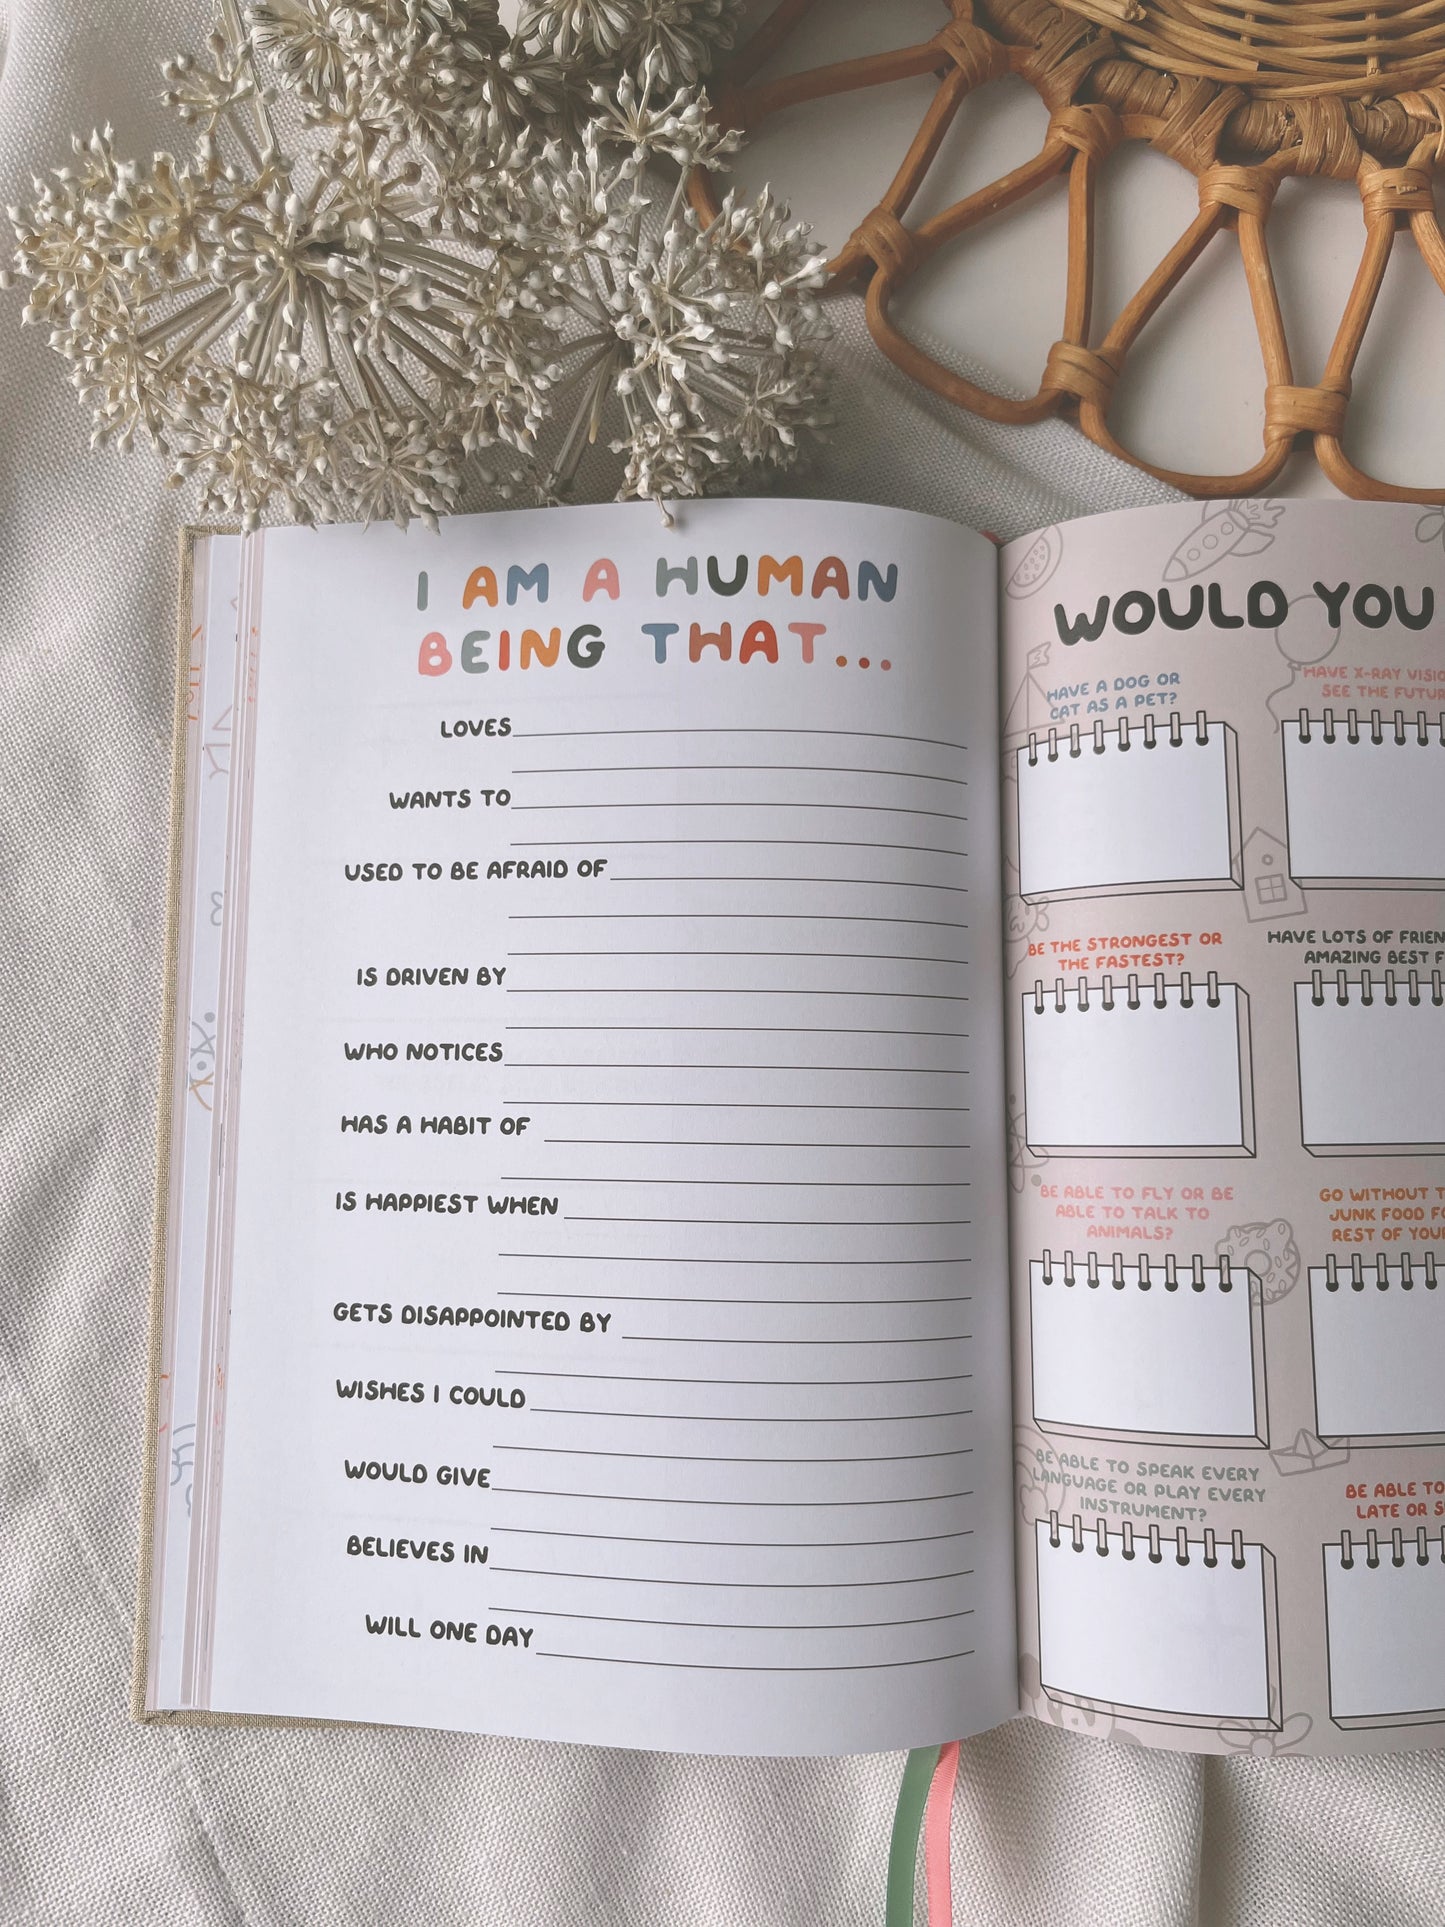 I AM A HUMAN
BEING THAT...
LOVES
WANTS TO
USED TO BE AFRAID OF
IS DRIVEN BY
WHO NOTICES
HAS A HABIT OF
IS HAPPIEST WHEN
GETS DISAPPOINTED BY
WISHES I COULD
WOULD GIVE
BELIEVES IN
WILL ONE DAY
WOULD YOU
HAVE A DOG OR
CAT AS A PET?
HAVE X-RAY
SEE THE
BE THE STRONGEST OR
THE FASTEST?
HAVE LOTS OF
AMAZING BEST
BE ABLE TO FLY OR BE
ABLE TO TALK TO
ANIMALS?
GO WITHOUT
JUNK FOOD
REST OF
BE ABLE TO SPEAK EVERY
LANGUAGE OR PLAY EVERY
INSTRUMENT?
BE ABLE TO
LATE OR